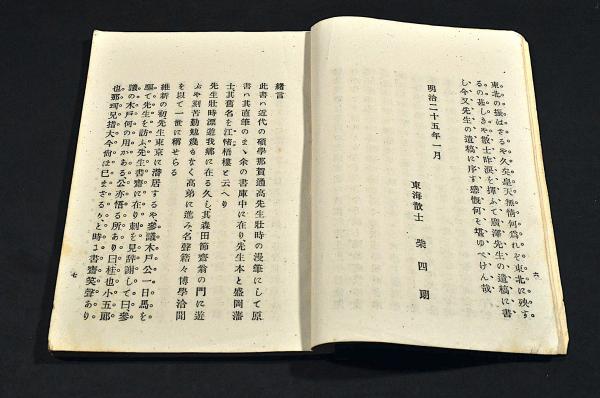 東北の振はさるや久矣皇天無情何爲れぞ東北に殃す
るの甚しきや散士昨涙を揮ふて廣澤先生の遺稿に書
し今又先生の遺稿に序す感慨何ぞ堪ゆべけん哉
明治二十五年一月
東海散士 柴四朗
六
緒言
此書ハ近代の碩學那賀通高先生壯時の漫筆にして原
書ハ其直筆のまゝ余の書庫中に在り先生本と盛岡藩
士其舊名を江幡梧樓と云へり
先生壯時漂遊我郷に在る久し其森田節齋翁の門に遊
ぶや刻苦勤勉幾もなく高弟に進み名聲籍々博學洽聞
を以て一世に稱せらる
維新の初先生東京に潛居するや參議木戸公一日馬を
驅て先生を訪ふ先生書齋に在り刺を見辭謝して曰參
議の木戸何の用かある公亦悟る所あり曰桂也小五郎
也那珂兄措大今尚ほ已まざるか、と時に書齋笑聲あり
七